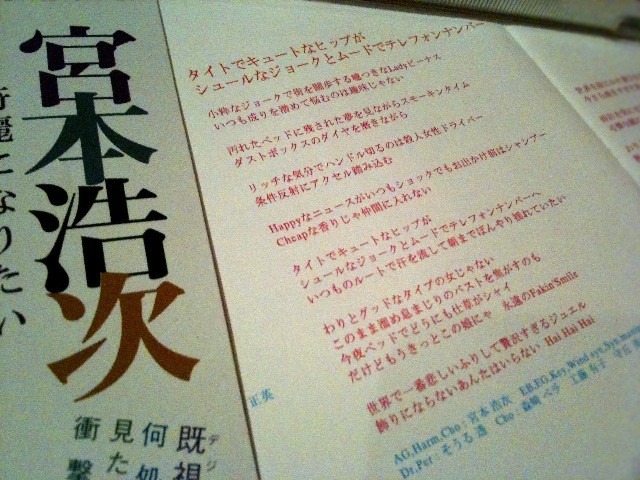 宮本浩次
綺麗になりたい
既視
デジ
何処
見た
衝撃
タイトでキュートなヒップが
シュールなジョークとムードでテレフォンナンバー
小粋なジョークで街を闊歩する魂つきなLadyビーナス
いつも成りを潜めて悩むのは趣味じゃない
汚れたベッドに残された夢を見ながらスモーキンタイム
ダストボックスのダイヤを磨きながら
リッチな気分でハンドル切るのは殺人女性ドライバー
条件反射にアクセル踏み込む
Happyなニュースがいつもショックでもお出かけ前はシャンプー
Cheapな香りじゃ仲間に入れない
タイトでキュートなヒップが
シュールなジョークとムードでテレフォンナンバーへ
いつものルートで汗を流して朝までぼんやり揺れていたい
わりとグッドなタイプの女じゃない
このまま溜め息まじりのベストを焦がすのも
今夜ベッドでどうにも仕草がシャイ
だけどもうきっとこの娘にゃ 永遠のFakin'Smile
世界で一番悲しいふりして贅沢すぎるジュエル
飾りにならないあんたはいらない Hai Hai Hai
正英
AG,Harm,Cho：宮本浩次 EB,EG,Key,Wind syt,Syn
Dr,Per：そうる透 Cho：森崎ベラ 工藤有子